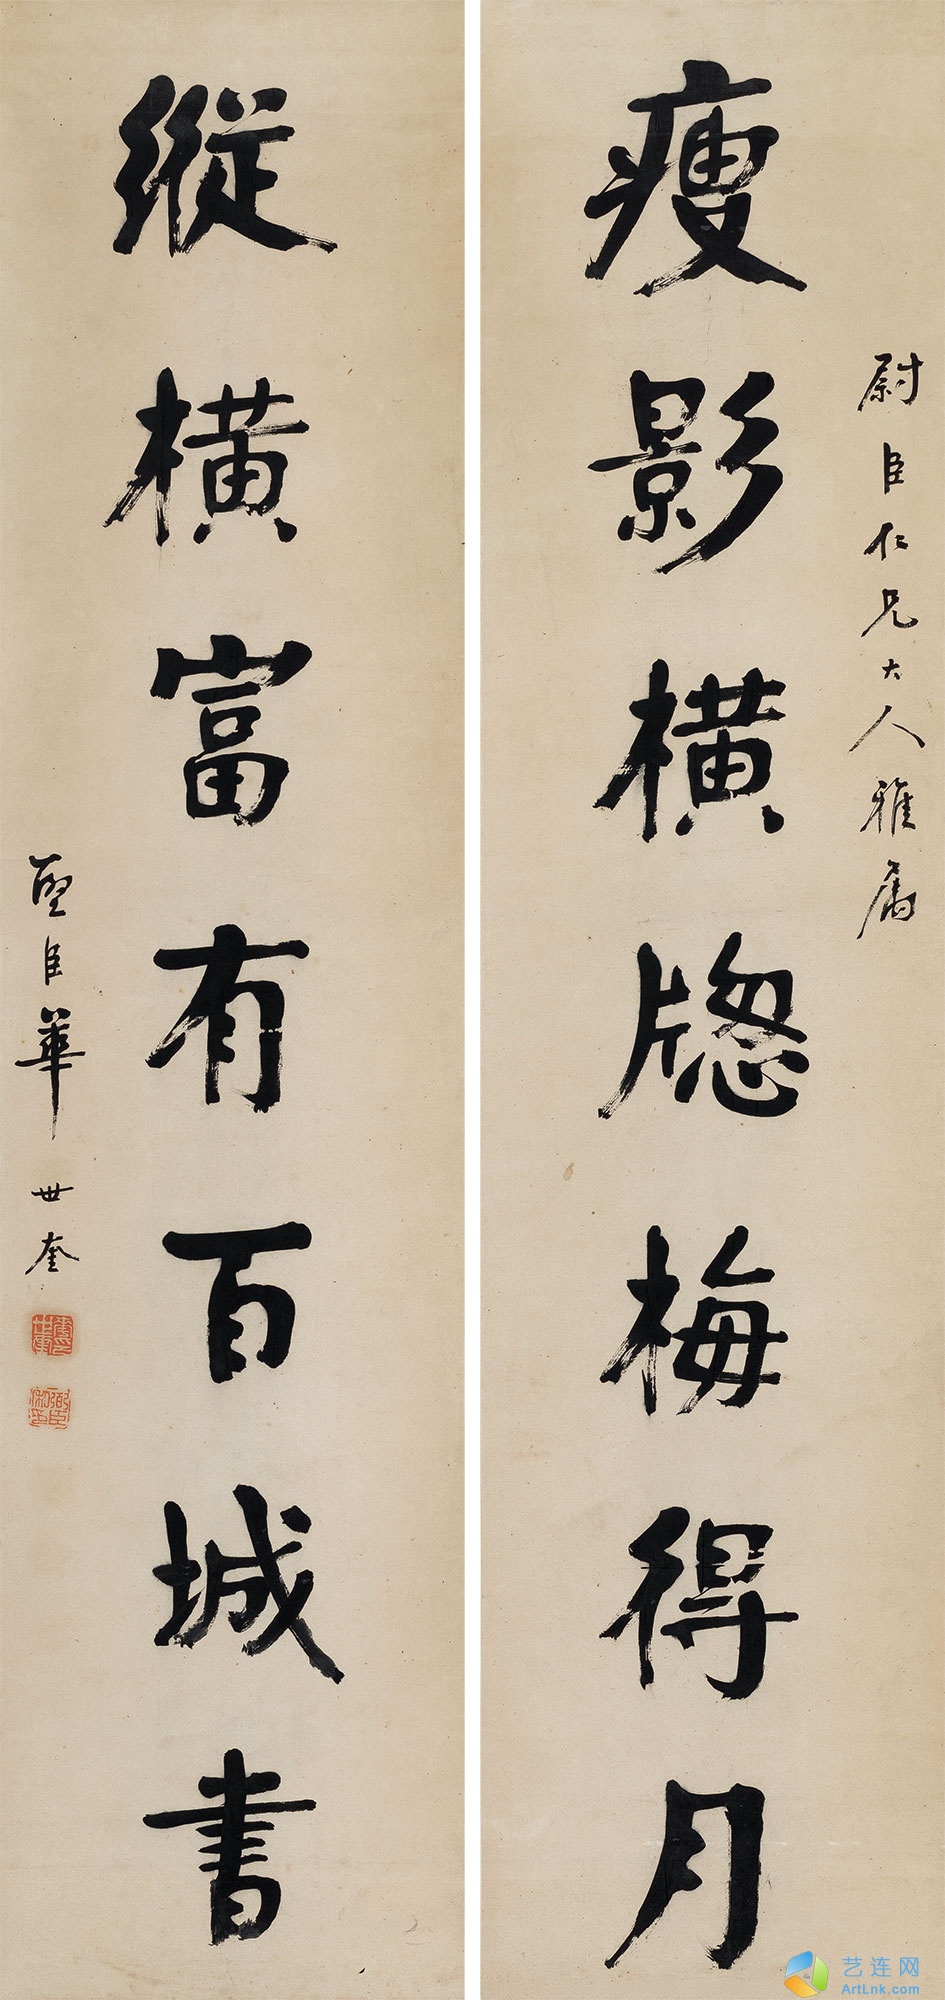 尉臣仁兄大人雅属
瘦影橫牎梅得月
縱橫富有百城書
臣華世奎
艺连网
ArtLnk.com